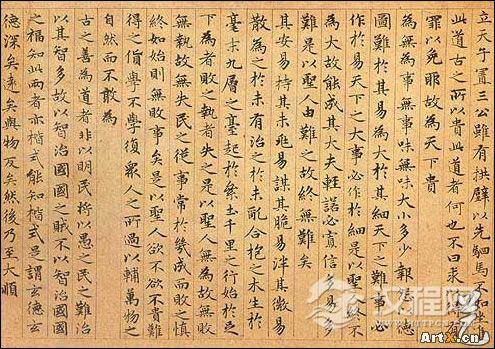 立天子置三公雖有拱璧以先駟馬不如坐
此道古之所以貴此道者何也不曰求以得
罪以免耶故為天下貴
為無為事無事味無味大小多少報怨以德
圖難於其易為大於其細天下之難事必
作於易天下之大事必作於細是以聖人終不
為大故能成其大夫輕諾必寡信多易多
難是以聖人由難之故終無難矣
其安易持其未兆易謀其脆易泮其微易
散為之於未有治之於未亂合抱之木生於
毫末九層之臺起於絫土千里之行始於足
下為者敗之執者失之是以聖人無為故無敗
無執故無失民之從事常於幾成而敗之慎
終如始則無敗事矣是以聖人欲不欲不貴難
得之貨學不學復眾人之所過以輔萬物之
自然而不敢為
古之善為道者非以明民將以愚之民之難治
以其智多故以智治國國之賊不以智治國國
之福知此兩者亦楷式能知楷式是謂玄德玄
德深矣遠矣與物反矣然後乃至大順
汉程网
ArtX.cn